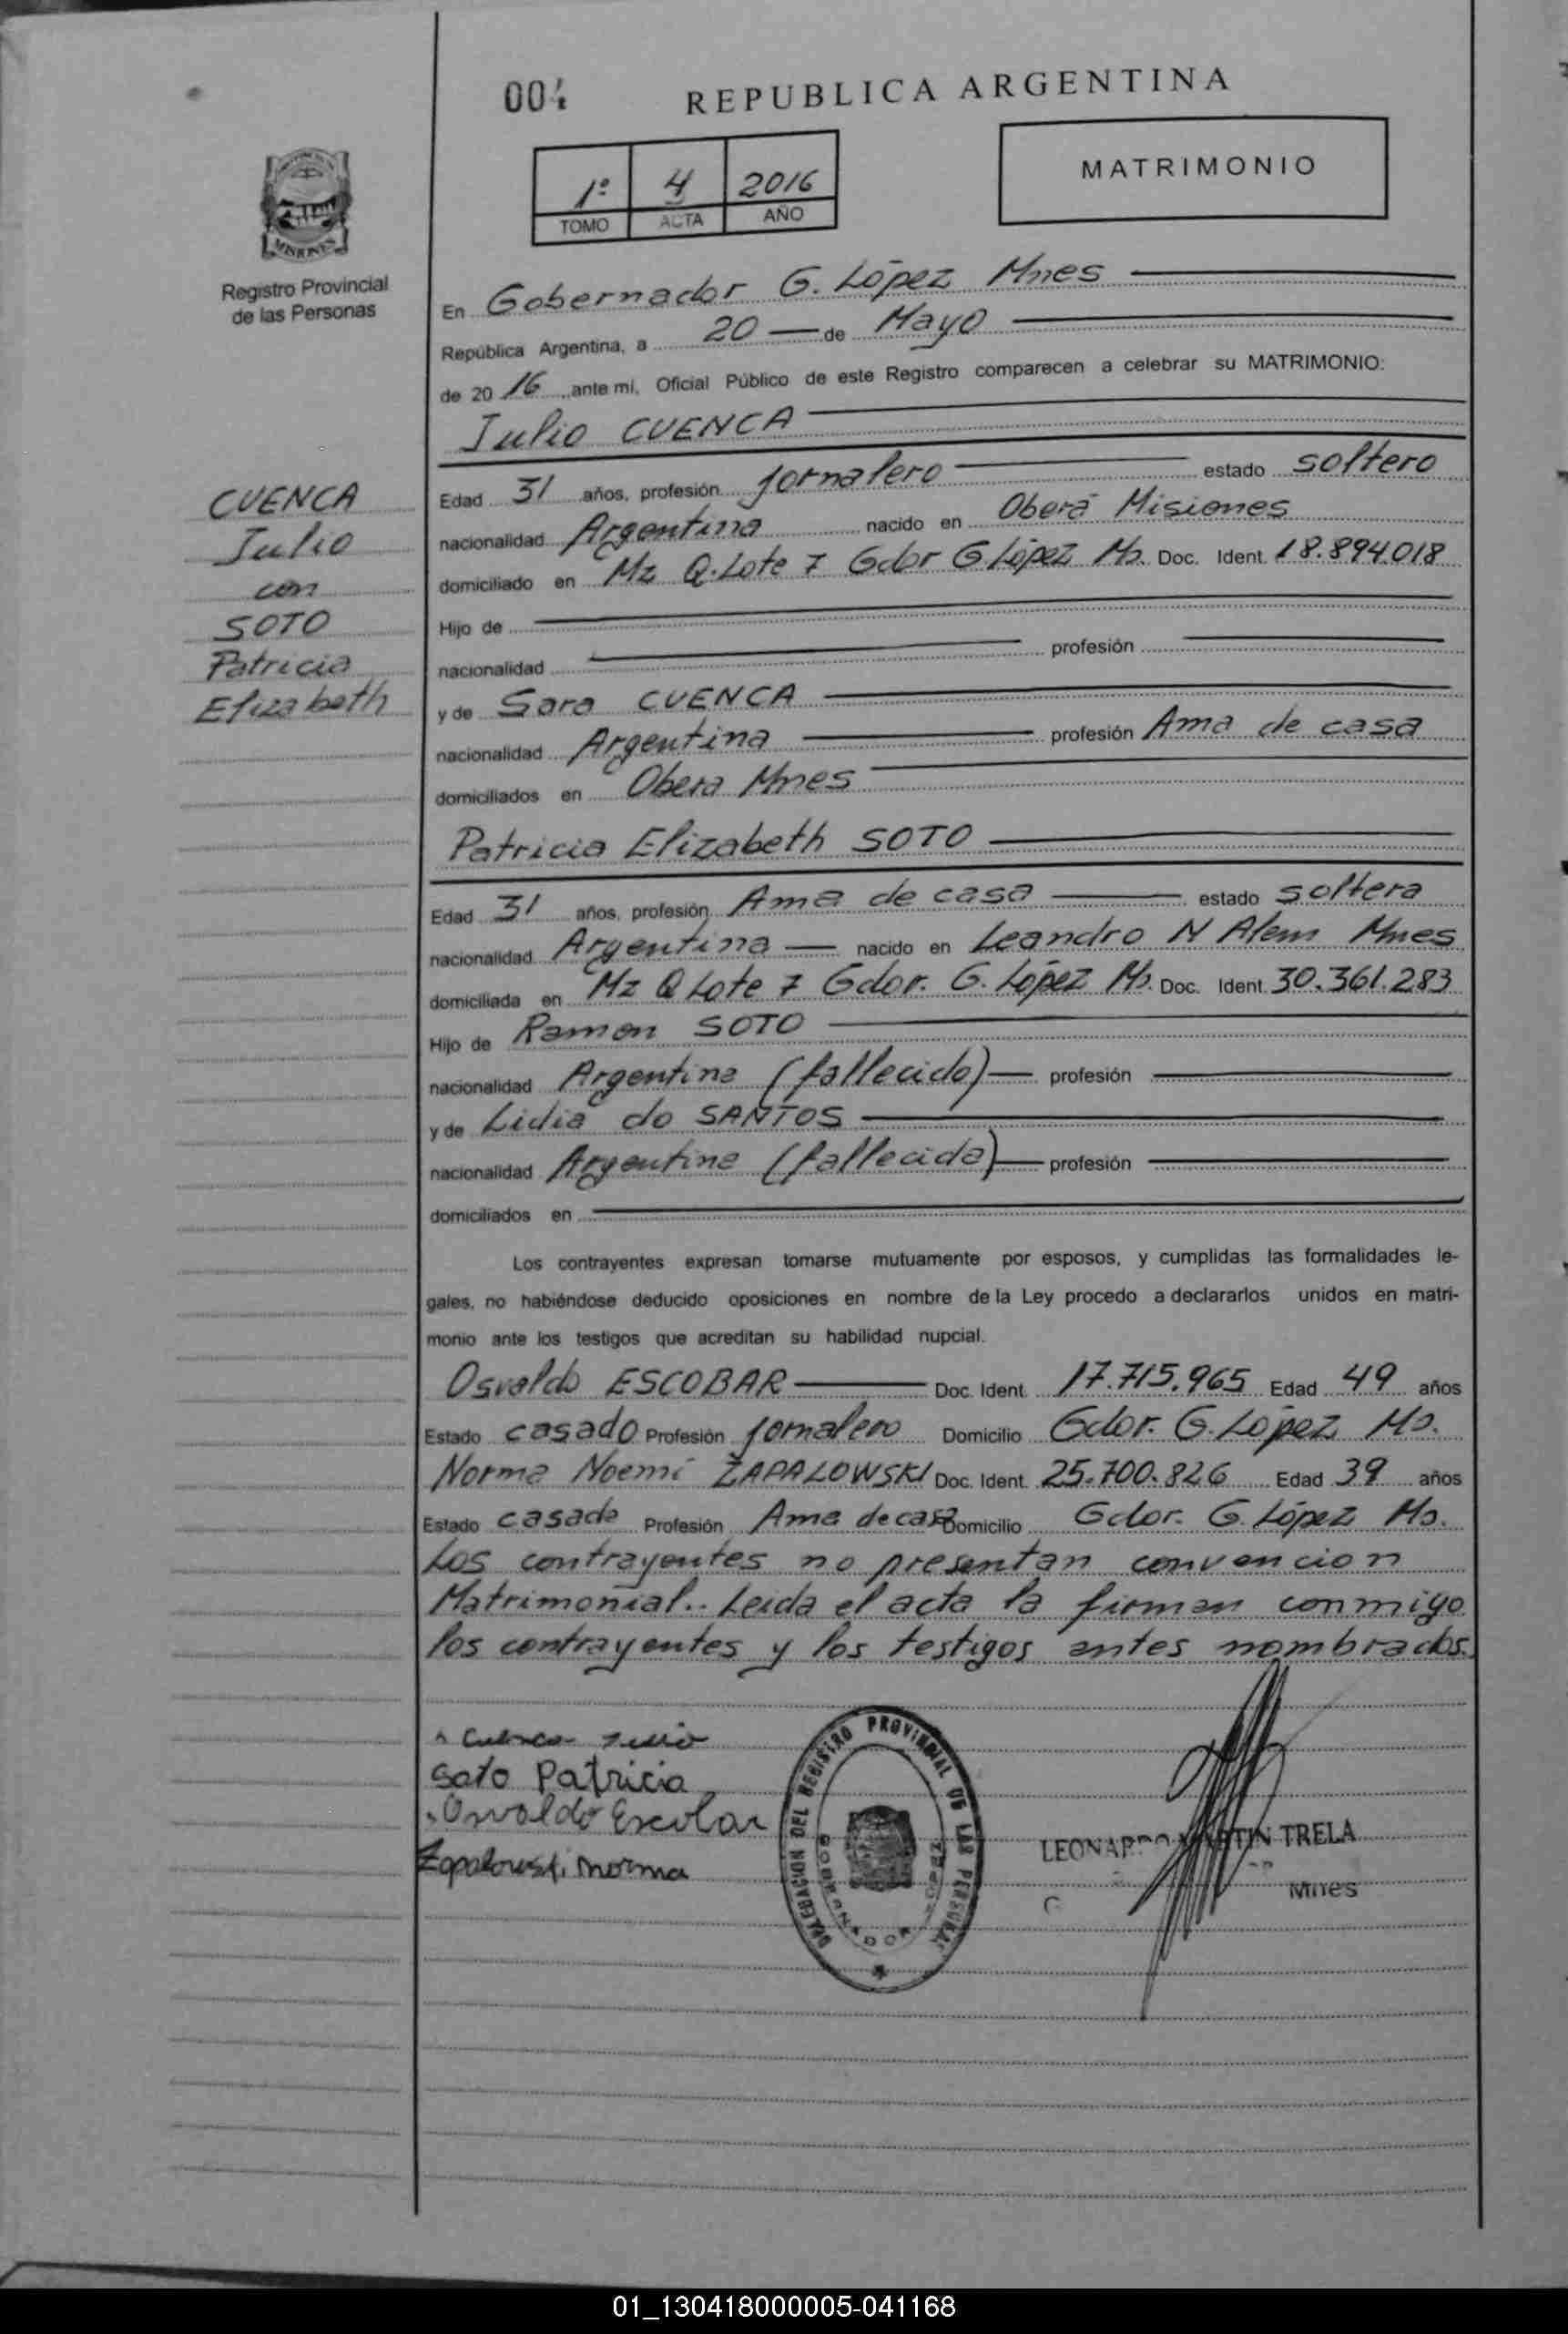 004
REPUBLICA ARGENTINA
1º 4 2016
TOMO ACTA AÑO
MATRIMONIO
MISIONES
Registro Provincial
de las Personas
CUENCA
Julio
con
SOTO
Patricia
Elizabeth
En Gobernador G. López Mnes
República Argentina, a 20 de Mayo
de 2016 ante mi, Oficial Público de este Registro comparecen a celebrar su MATRIMONIO:
Julio CUENCA
Edad 31 años, profesión jornalero estado soltero
nacionalidad Argentina nacido en Oberá Misiones
domiciliado en Mz Q. Lote 7 Gdor G López Ms. Doc. Ident. 18.894.018
Hijo de
nacionalidad profesión
y de Sara CUENCA
nacionalidad Argentina profesión Ama de casa
domiciliados en Obera Mnes
Patricia Elizabeth SOTO
Edad 31 años, profesión Ama de casa estado soltera
nacionalidad Argentina nacido en Leandro N Alem Mnes
domiciliada en Mz Q Lote 7 Gdor. G. López Ms. Doc. Ident. 30.361.283
Hijo de Ramon SOTO
nacionalidad Argentina (fallecido) profesión
y de Lidia do SANTOS
nacionalidad Argentina (fallecida) profesión
domiciliados en
Los contrayentes expresan tomarse mutuamente por esposos, y cumplidas las formalidades le-
gales, no habiéndose deducido oposiciones en nombre de la Ley procedo a declararlos unidos en matri-
monio ante los testigos que acreditan su habilidad nupcial.
Osvaldo ESCOBAR Doc. Ident. 17.715.965 Edad 49 años
Estado casado Profesión jornalero Domicilio Gdor. G. López Ms.
Norma Noemí ZAPALOWSKI Doc. Ident. 25.700.826 Edad 39 años
Estado casada Profesión Ama de casa Domicilio Gdor. G. López Ms.
Los contrayentes no presentan convencion
Matrimonial.. Leida el acta la firman conmigo
los contrayentes y los testigos antes nombrados.
Cuenca Julio
Soto Patricia
Osvaldo Escobar
Zapalowski norma
DELEGACION DEL REGISTRO PROVINCIAL DE LAS PERSONAS
GOBERNADOR LOPEZ
LEONARDO MARTIN TRELA
Mnes
01_130418000005-041168